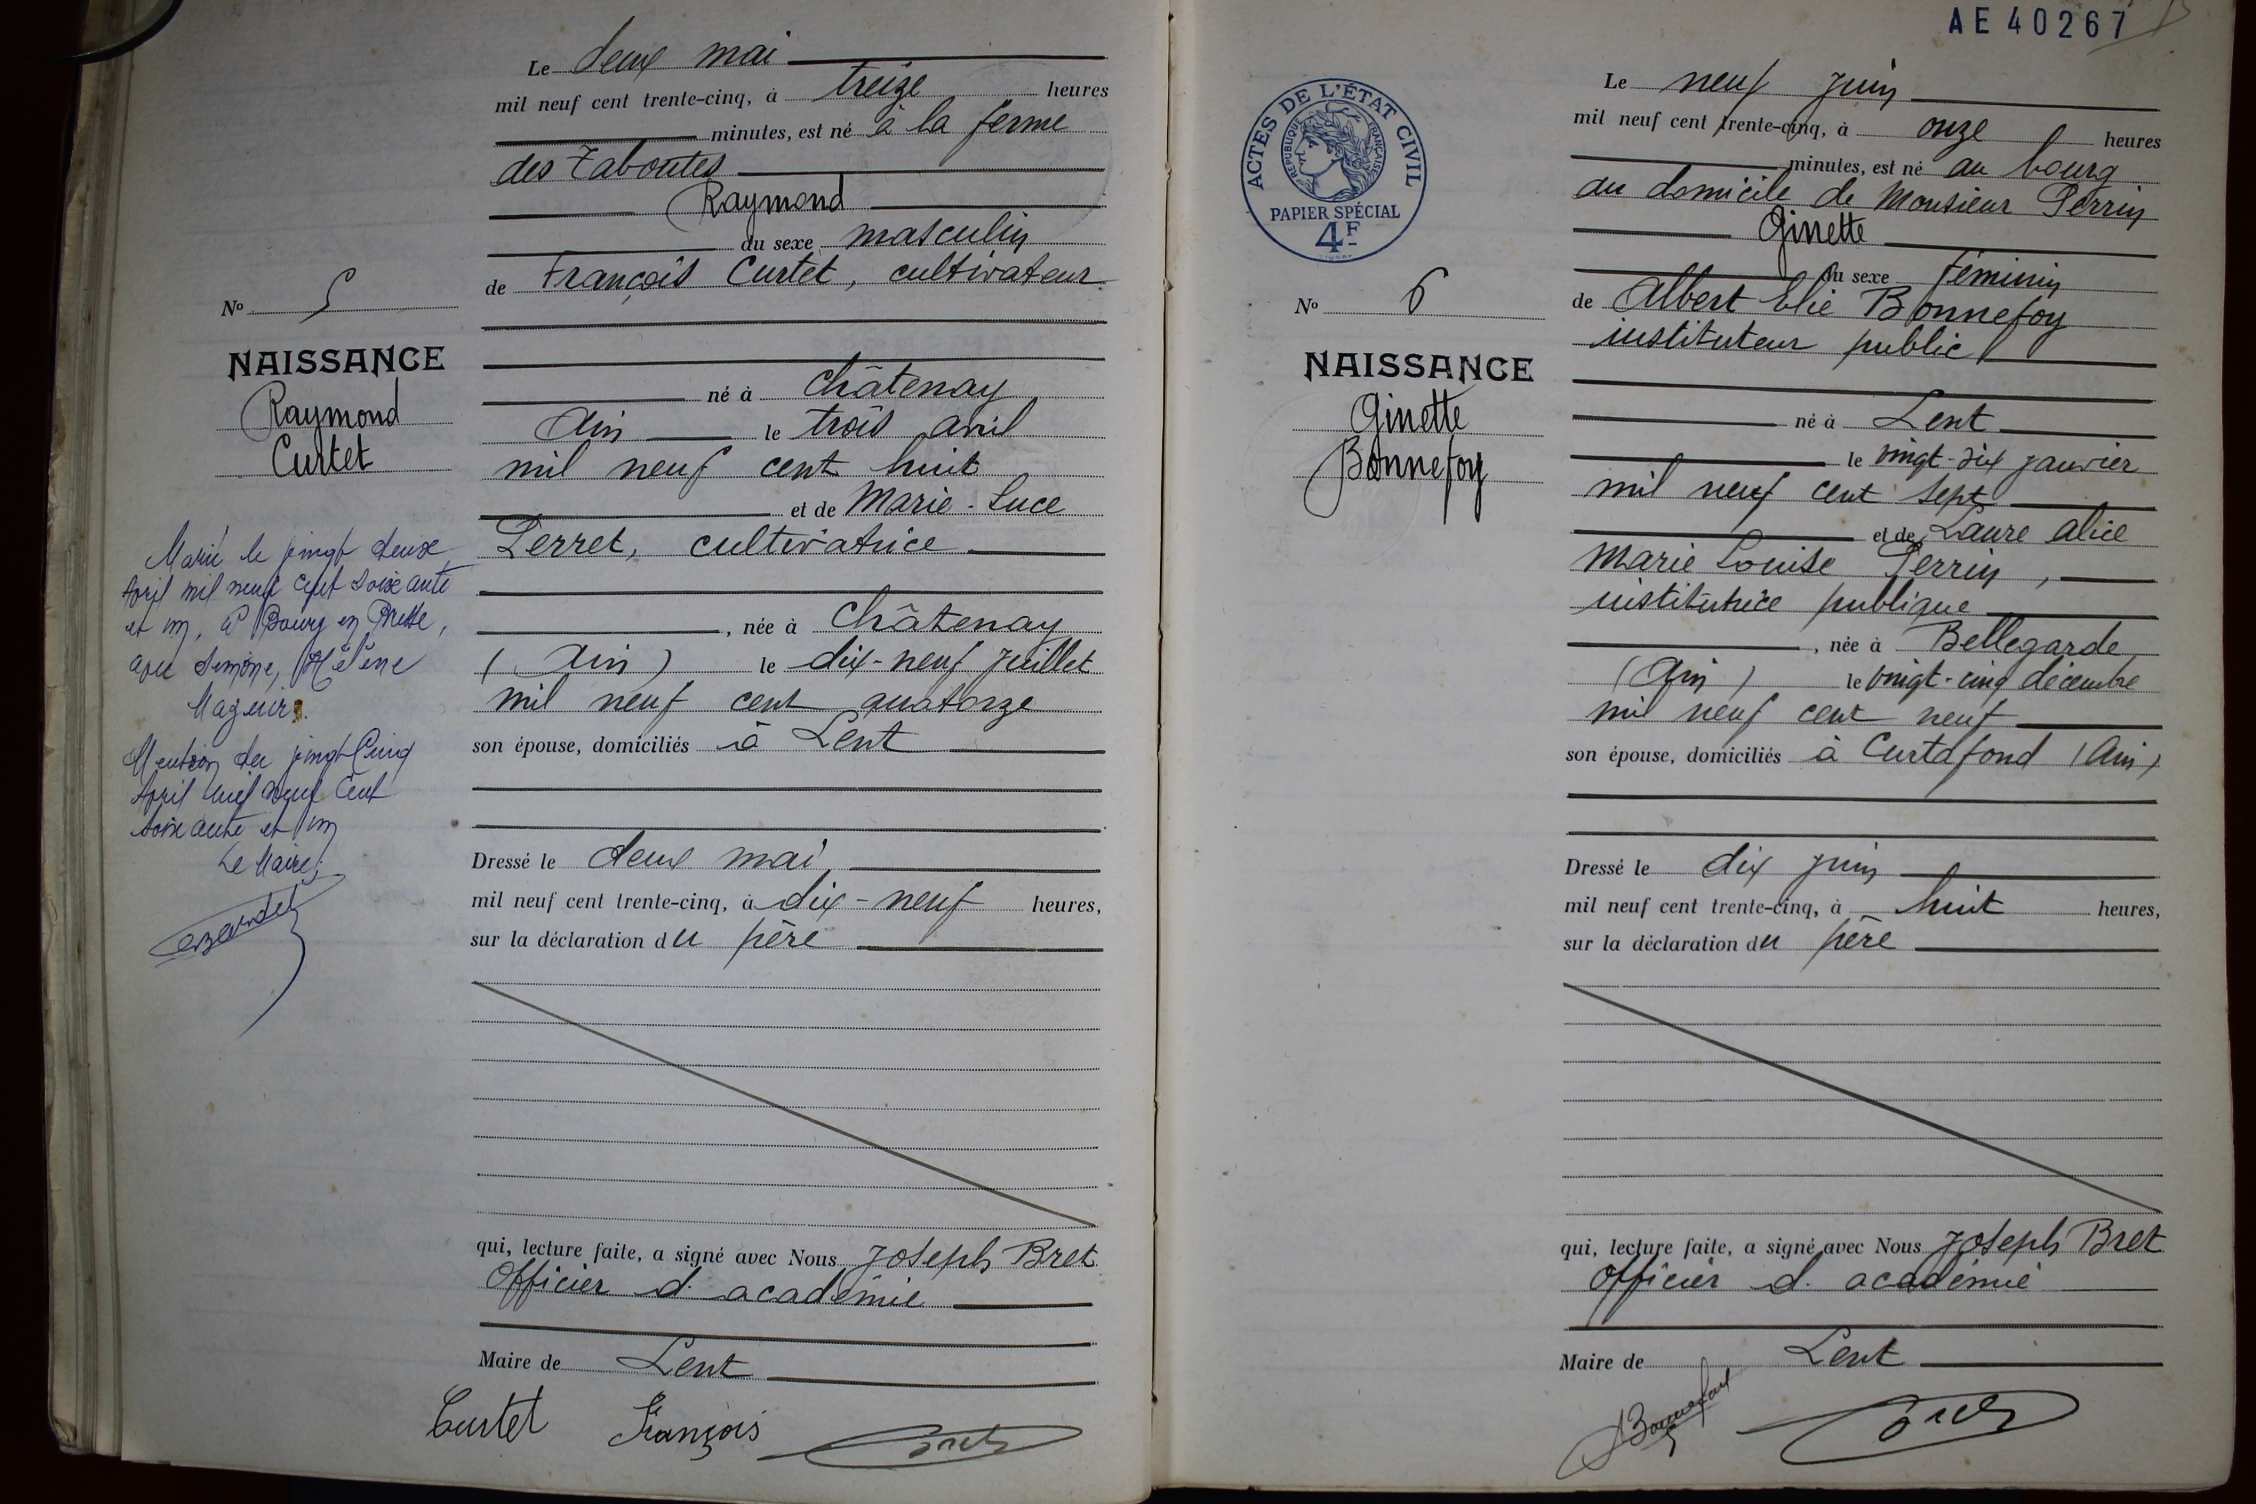 Le deux mai
mil neuf cent trente-cinq, à treize heures
minutes, est né à la ferme
des Taboutes
Raymond
du sexe masculin
de François Curtet, cultivateur
né à Châtenay
Ain le trois avril
mil neuf cent huit
et de Marie-Luce
Perret, cultivatrice
, née à Châtenay
(Ain) le dix-neuf juillet
mil neuf cent quatorze
son épouse, domiciliés à Lent
Dressé le deux mai
mil neuf cent trente-cinq, à dix-neuf heures,
sur la déclaration du père
qui, lecture faite, a signé avec Nous Joseph Bret
Officier d. académie
Maire de Lent
Curtet François
Bret
No 5
NAISSANCE
Raymond
Curtet
Marié le vingt deux
Avril mil neuf cent soixante
et un, à Bourg en Bresse,
avec Simone, Hélène
Mention du vingt Cinq
Avril mil neuf Cent
soixante et un
Le Maire,
AE 40267
ACTES DE L'ÉTAT CIVIL
RÉPUBLIQUE FRANÇAISE
PAPIER SPÉCIAL
4F
No 6
NAISSANCE
Ginette
Bonnefoy
Le neuf juin
mil neuf cent trente-cinq, à onze heures
minutes, est né au bourg
au domicile de Monsieur Perrin
Ginette
du sexe féminin
de Albert Elie Bonnefoy
instituteur public
né à Lent
le vingt-six janvier
mil neuf cent sept
et de Laure Alice
Marie Louise Perrin,
institutrice publique
, née à Bellegarde
(Ain) le vingt-cinq décembre
mil neuf cent neuf
son épouse, domiciliés à Curtafond (Ain)
Dressé le dix juin
mil neuf cent trente-cinq, à huit heures,
sur la déclaration du père
qui, lecture faite, a signé avec Nous Joseph Bret
Officier d. académie
Maire de Lent
Bonnefoy
Bret